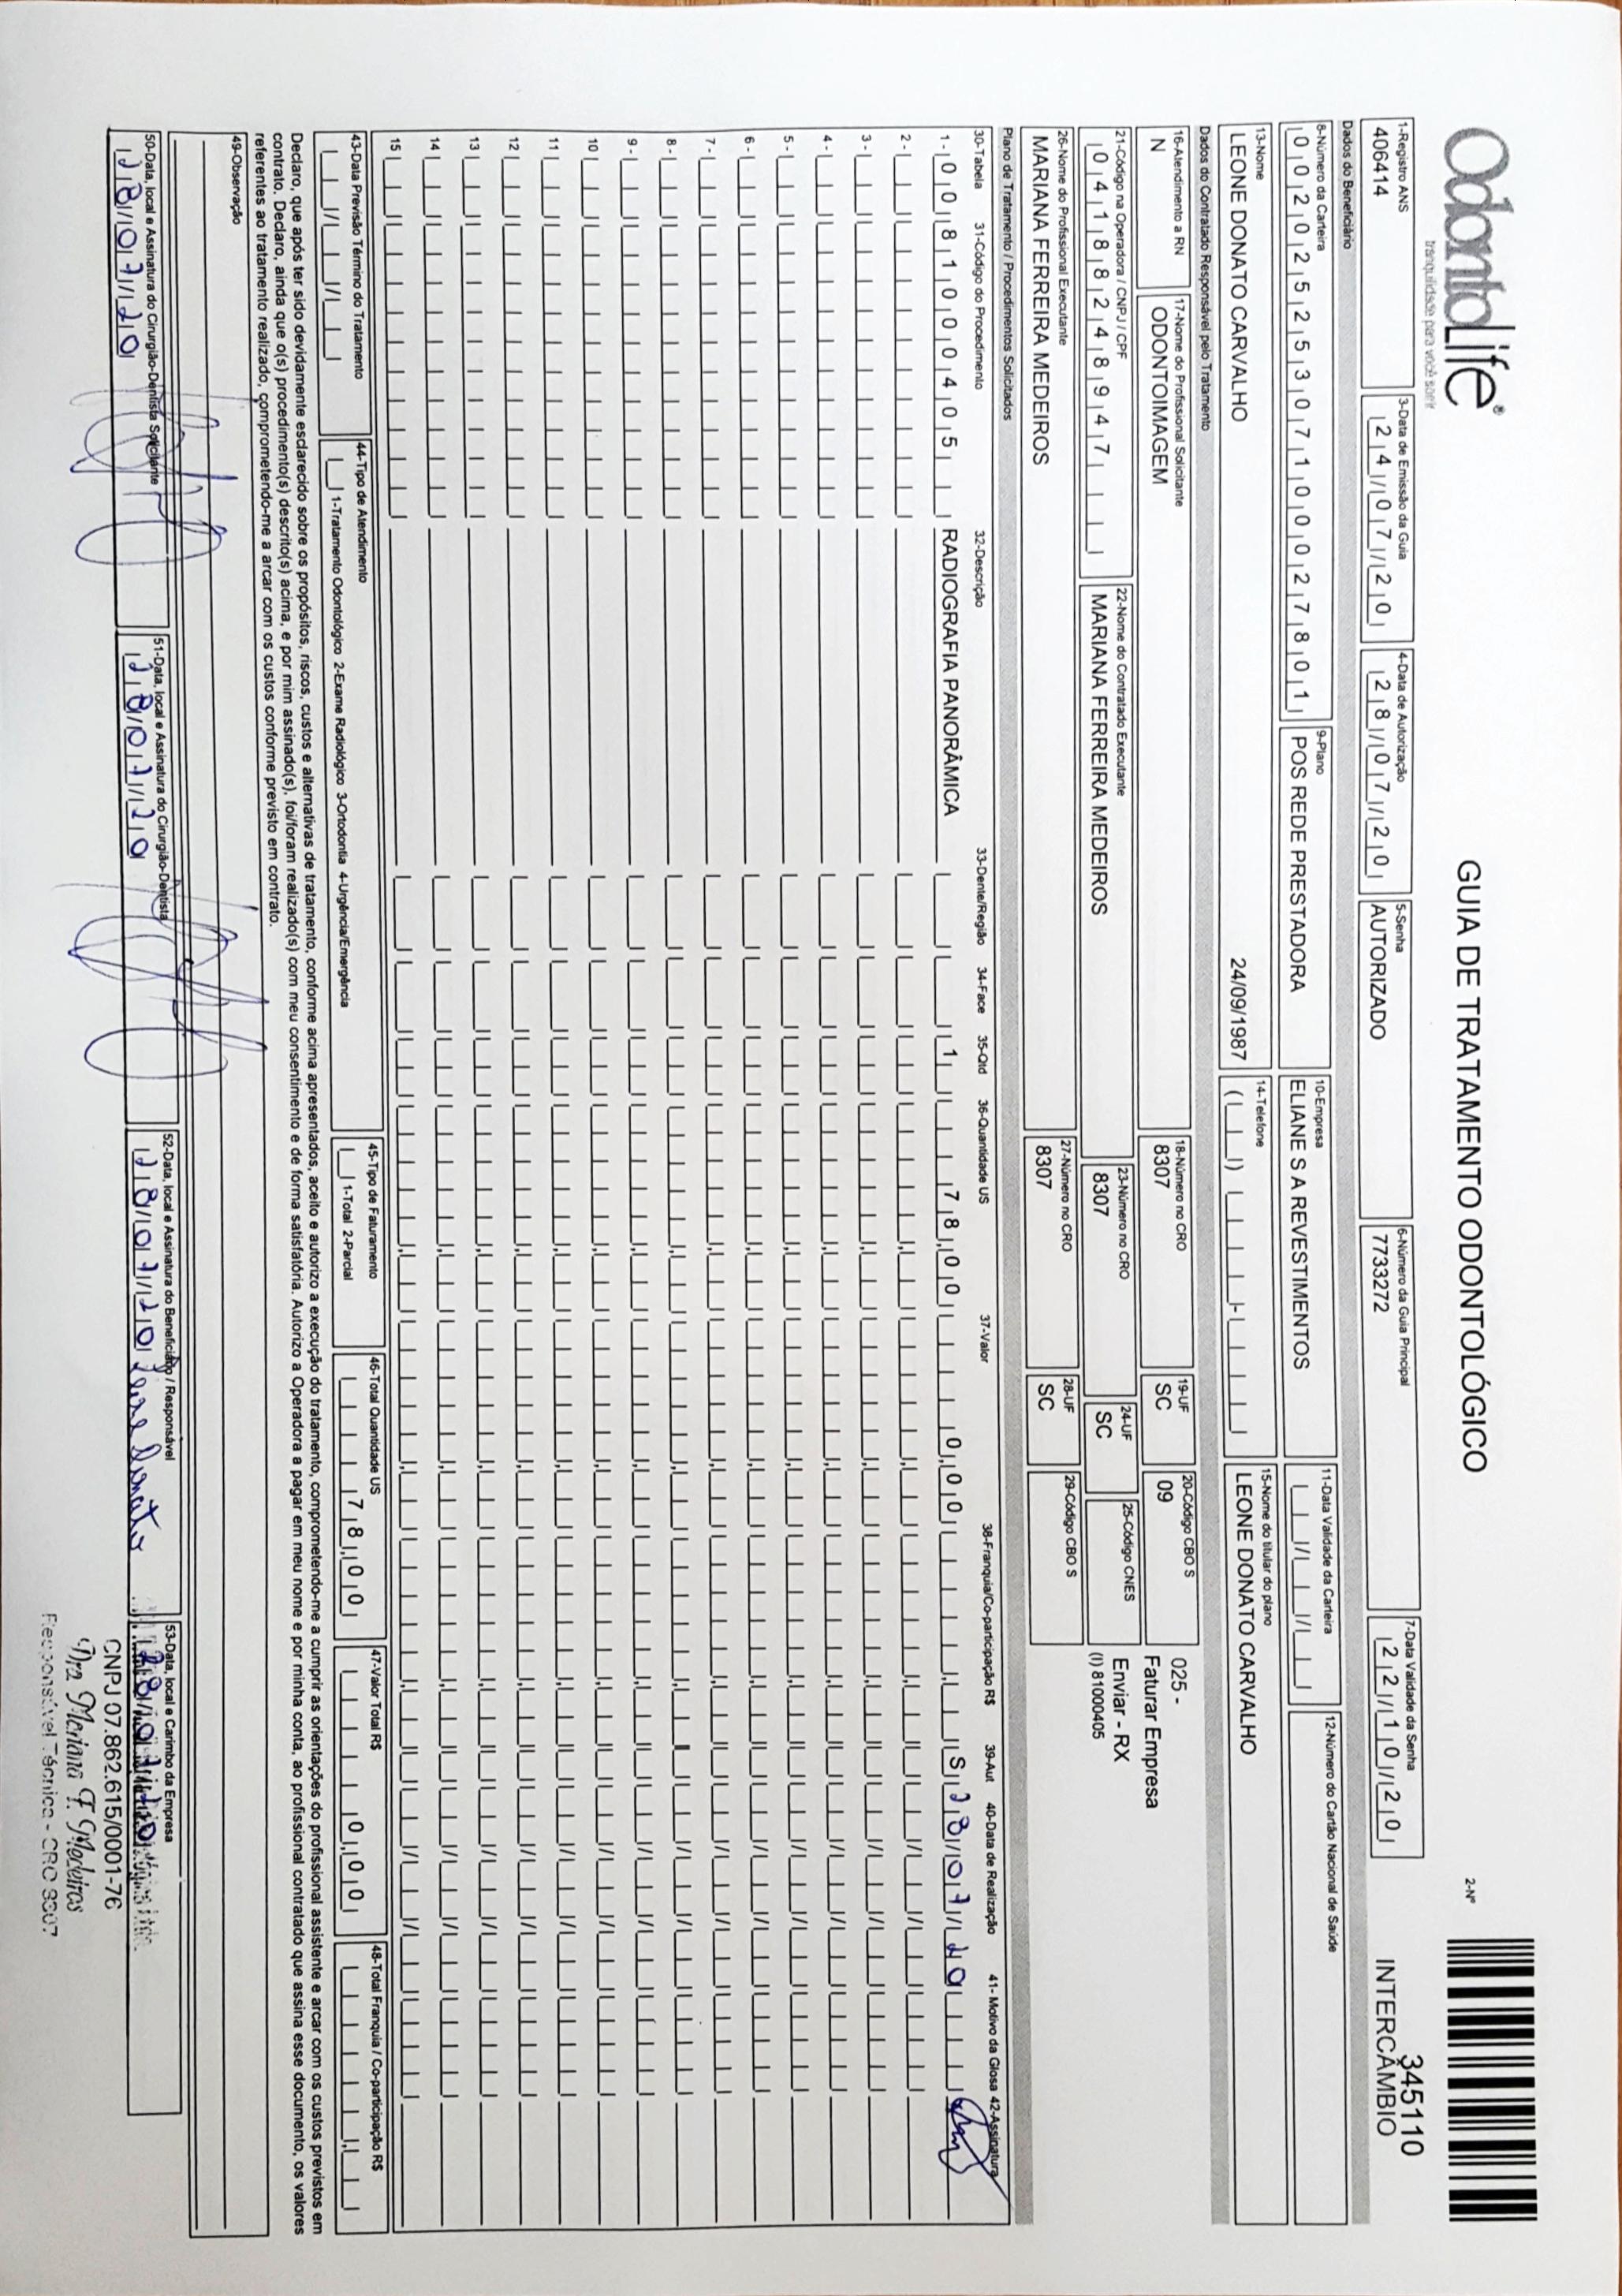 OdontoLife®
tranquilidade para você sorrir
GUIA DE TRATAMENTO ODONTOLÓGICO
2-Nº
345110
INTERCÂMBIO
1-Registro ANS
406414
3-Data de Emissão da Guia
24/07/20
4-Data de Autorização
28/07/20
5-Senha
AUTORIZADO
6-Número da Guia Principal
7733272
7-Data Validade da Senha
22/10/20
Dados do Beneficiário
8-Número da Carteira
00202525307100027801
9-Plano
POS REDE PRESTADORA
10-Empresa
ELIANE S A REVESTIMENTOS
11-Data Validade da Carteira
12-Número do Cartão Nacional de Saúde
13-Nome
LEONE DONATO CARVALHO 24/09/1987
14-Telefone
15-Nome do titular do plano
LEONE DONATO CARVALHO
Dados do Contratado Responsável pelo Tratamento
16-Atendimento a RN
N
17-Nome do Profissional Solicitante
ODONTOIMAGEM
18-Número no CRO
8307
19-UF
SC
20-Código CBO S
09
025 -
Faturar Empresa
Enviar - RX
(I) 81000405
21-Código na Operadora / CNPJ / CPF
04188248947
22-Nome do Contratado Executante
MARIANA FERREIRA MEDEIROS
23-Número no CRO
8307
24-UF
SC
25-Código CNES
26-Nome do Profissional Executante
MARIANA FERREIRA MEDEIROS
27-Número no CRO
8307
28-UF
SC
29-Código CBO S
Plano de Tratamento / Procedimentos Solicitados
30-Tabela 31-Código do Procedimento 32-Descrição 33-Dente/Região 34-Face 35-Qtd 36-Quantidade US 37-Valor 38-Franquia/Co-participação R$ 39-Aut 40-Data de Realização 41- Motivo da Glosa 42-Assinatura
1 - 00 81000405 RADIOGRAFIA PANORÂMICA 1 78,00 0,00 S 28/07/20
2 -
3 -
4 -
5 -
6 -
7 -
8 -
9 -
10
11
12
13
14
15
43-Data Previsão Término do Tratamento
44-Tipo de Atendimento
1-Tratamento Odontológico 2-Exame Radiológico 3-Ortodontia 4-Urgência/Emergência
45-Tipo de Faturamento
1-Total 2-Parcial
46-Total Quantidade US
78,00
47-Valor Total R$
0,00
48-Total Franquia / Co-participação R$
Declaro, que após ter sido devidamente esclarecido sobre os propósitos, riscos, custos e alternativas de tratamento, conforme acima apresentados, aceito e autorizo a execução do tratamento, comprometendo-me a cumprir as orientações do profissional assistente e arcar com os custos previstos em
contrato. Declaro, ainda que o(s) procedimento(s) descrito(s) acima, e por mim assinado(s), foi/foram realizado(s) com meu consentimento e de forma satisfatória. Autorizo a Operadora a pagar em meu nome e por minha conta, ao profissional contratado que assina esse documento, os valores
referentes ao tratamento realizado, comprometendo-me a arcar com os custos conforme previsto em contrato.
49-Observação
50-Data, local e Assinatura do Cirurgião-Dentista Solicitante
28/07/20
51-Data, local e Assinatura do Cirurgião-Dentista
28/07/20
52-Data, local e Assinatura do Beneficiário / Responsável
28/07/20 Leone Donato
53-Data, local e Carimbo da Empresa
28/07/20
CNPJ 07.862.615/0001-76
Dra Mariana F. Medeiros
Responsável Técnica - CRO 8307